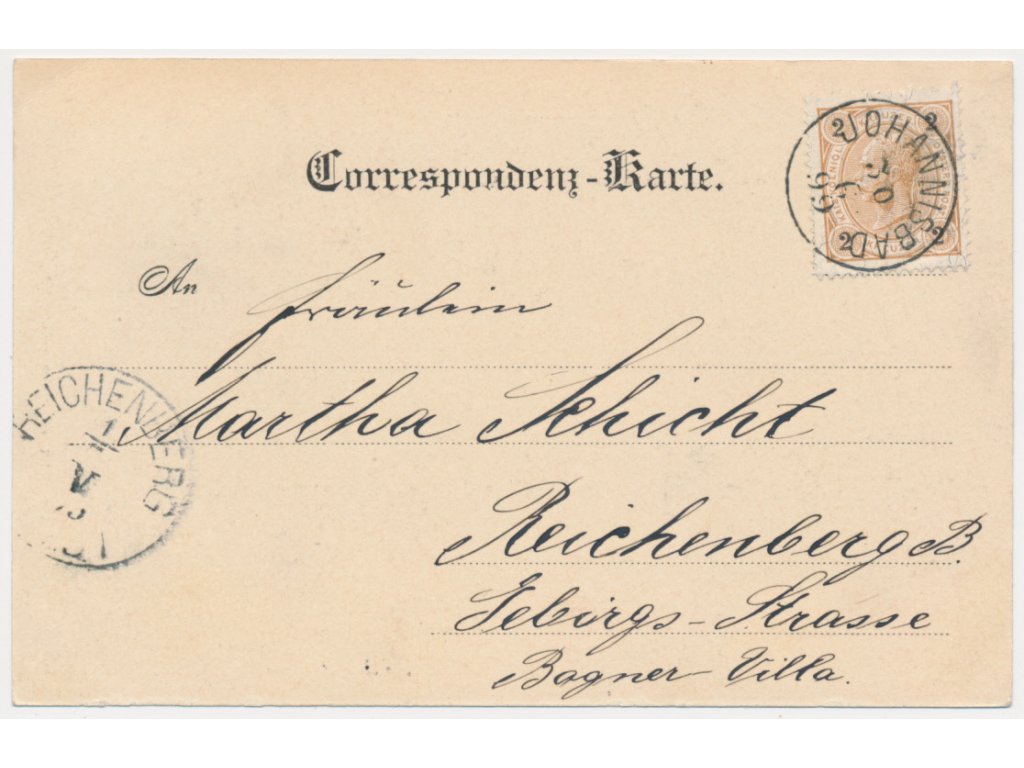 Correspondenz-Karte.
JOHANNISBAD
30
6
99
2 2
2 2
An
Fräulein
Martha Schicht
REICHENBERG
Reichenberg B.
Gebirgs-Strasse
Bogner Villa.